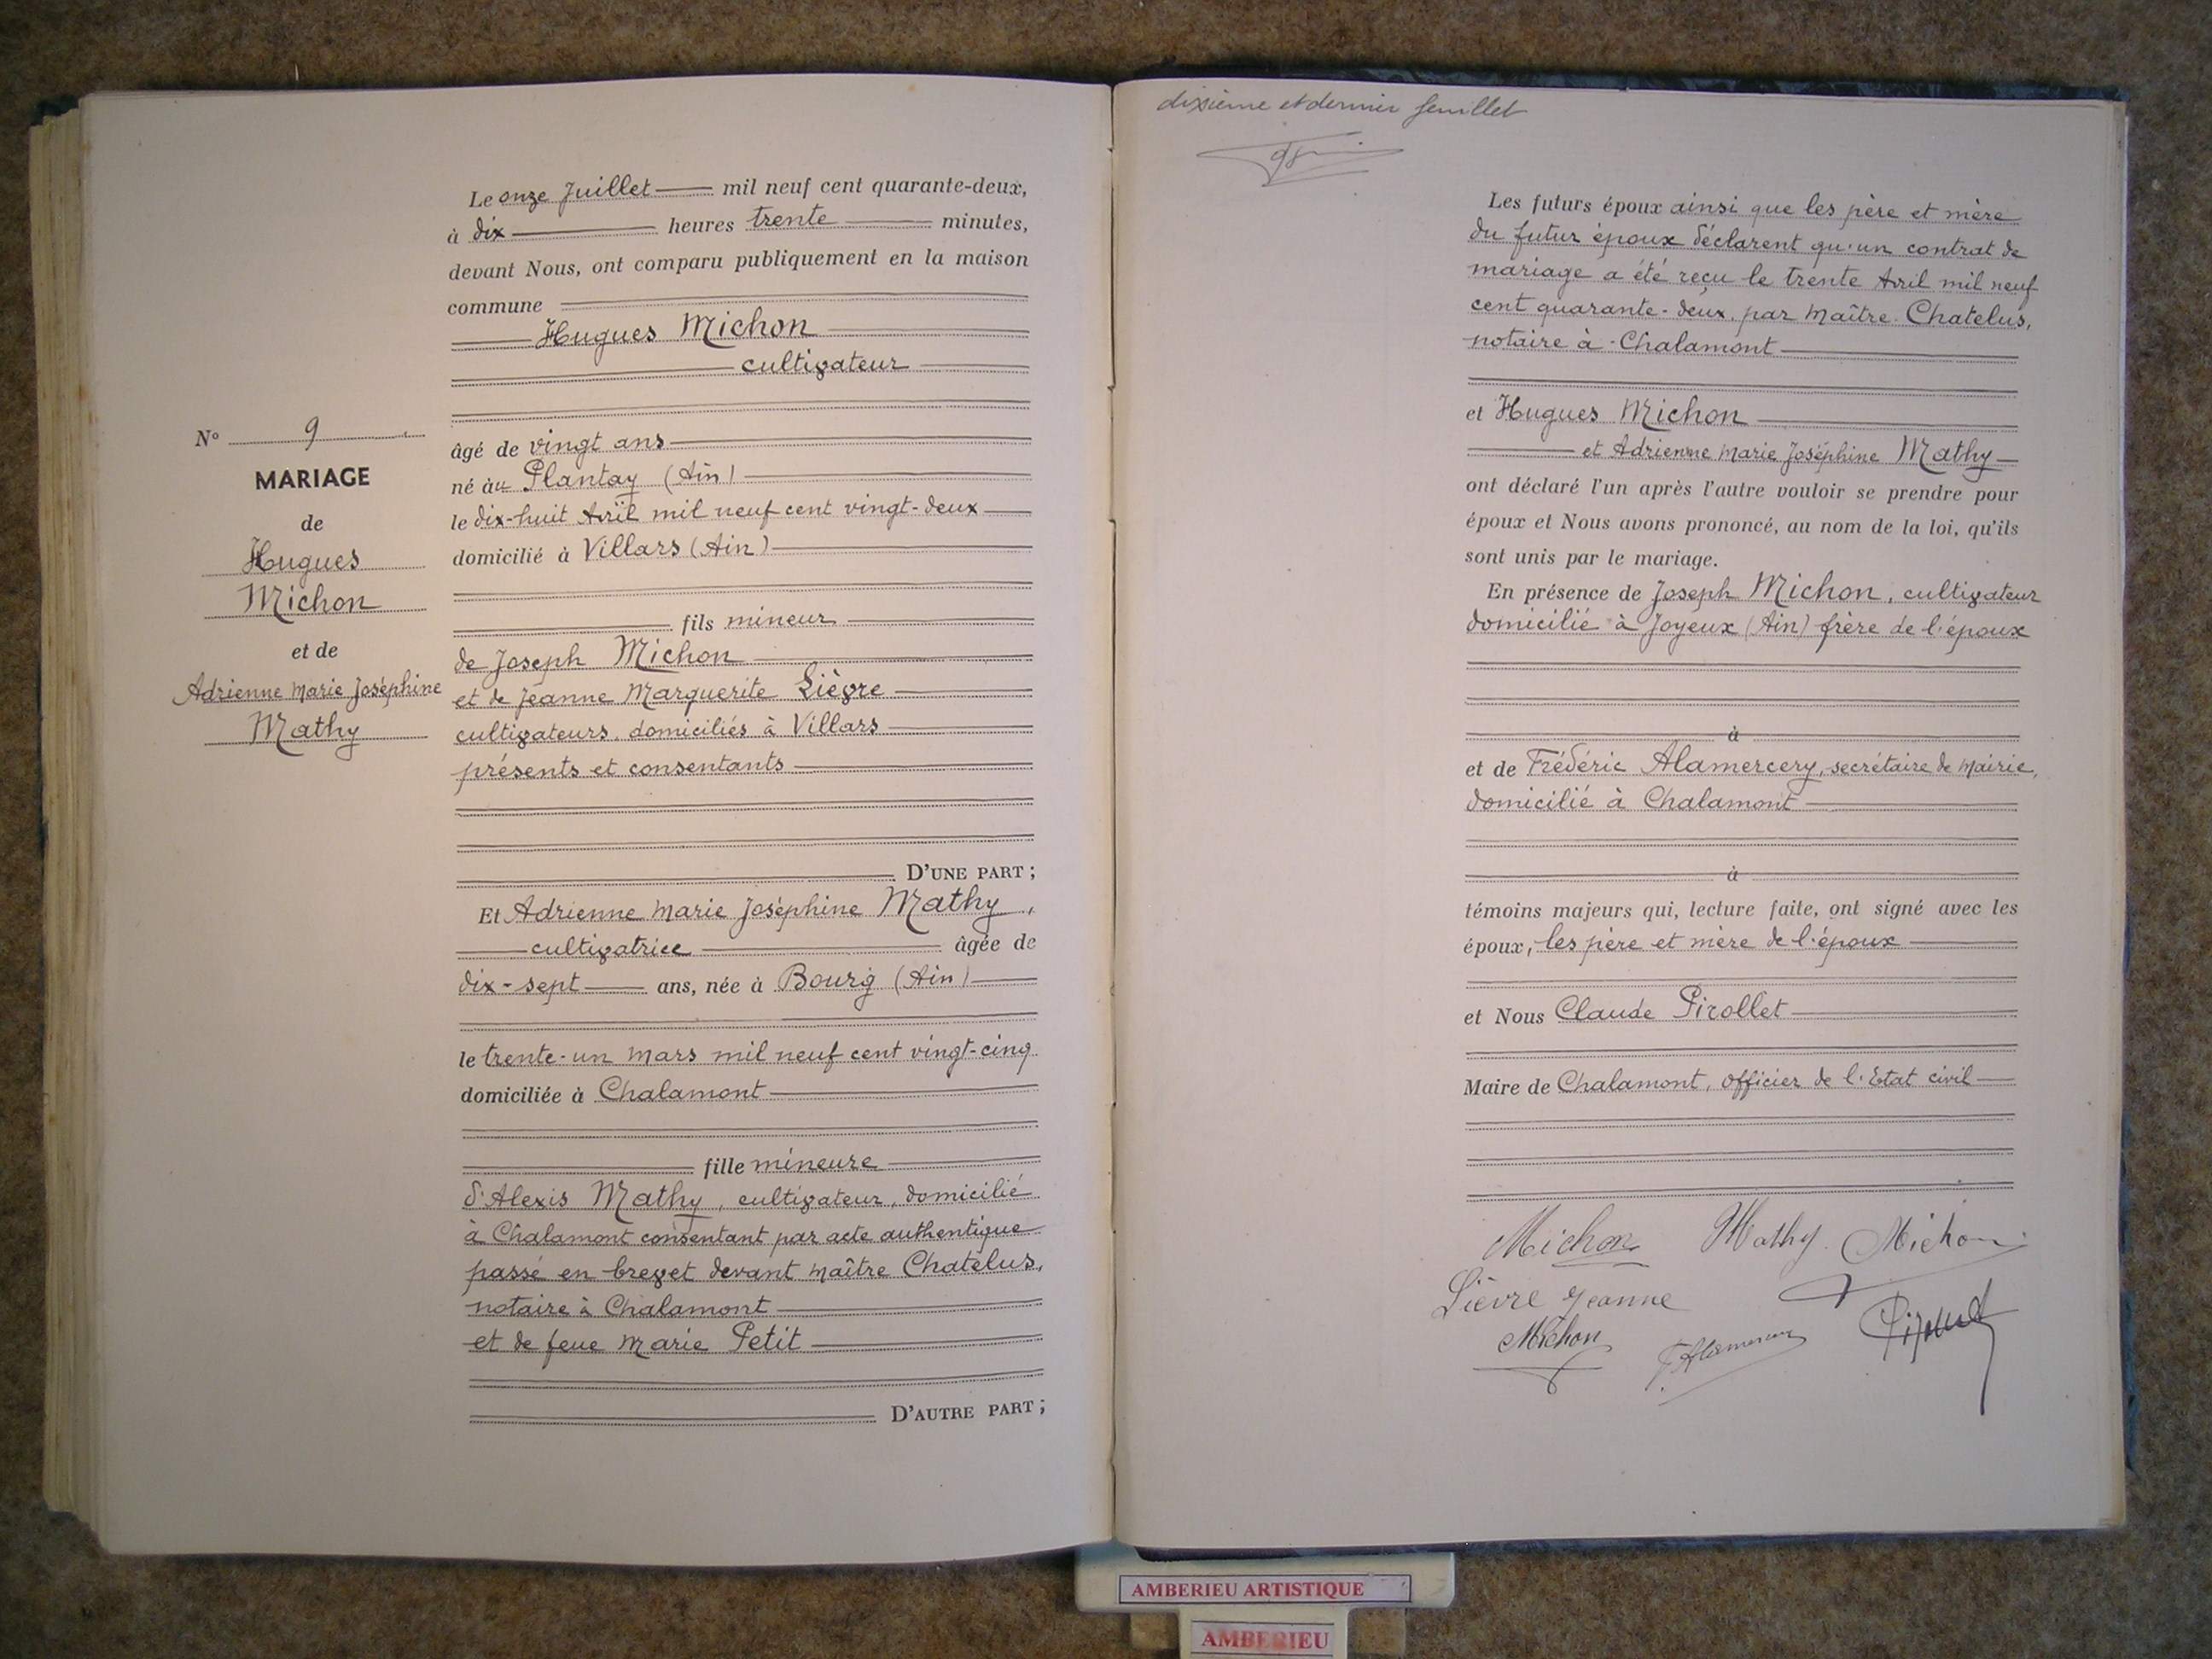 N° 9
MARIAGE
de
Hugues
Michon
et de
Adrienne Marie Joséphine
Mathy
Le onze Juillet mil neuf cent quarante-deux,
à dix heures trente minutes,
devant Nous, ont comparu publiquement en la maison
commune
Hugues Michon
cultivateur
âgé de vingt ans
né àu Plantay (Ain)
le dix-huit Avril mil neuf cent vingt-deux
domicilié à Villars (Ain)
fils mineur
de Joseph Michon
et de Jeanne Marguerite Lièvre
cultivateurs, domiciliés à Villars
présents et consentants
D'UNE PART ;
Et Adrienne Marie Joséphine Mathy,
cultivatrice âgée de
dix-sept ans, née à Bourg (Ain)
le trente-un Mars mil neuf cent vingt-cinq
domiciliée à Chalamont
fille mineure
d'Alexis Mathy, cultivateur, domicilié
à Chalamont consentant par acte authentique
passé en brevet devant Maître Chatelus,
notaire à Chalamont
et de feue Marie Petit
D'AUTRE PART ;
dixième et dernier feuillet
Les futurs époux ainsi que les père et mère
du futur époux déclarent qu'un contrat de
mariage a été reçu le trente Avril mil neuf
cent quarante-deux, par Maître Chatelus,
notaire à Chalamont
et Hugues Michon
et Adrienne Marie Joséphine Mathy
ont déclaré l'un après l'autre vouloir se prendre pour
époux et Nous avons prononcé, au nom de la loi, qu'ils
sont unis par le mariage.
En présence de Joseph Michon, cultivateur
domicilié à Joyeux (Ain) frère de l'époux
à
et de Frédéric Alamercery, secrétaire de Mairie,
domicilié à Chalamont
à
témoins majeurs qui, lecture faite, ont signé avec les
époux, les père et mère de l'époux
et Nous Claude Pirollet
Maire de Chalamont, officier de l'Etat civil
Michon Mathy Michon
Lièvre Jeanne
Michon F. Alamercery Pirollet
AMBERIEU ARTISTIQUE
AMBERIEU